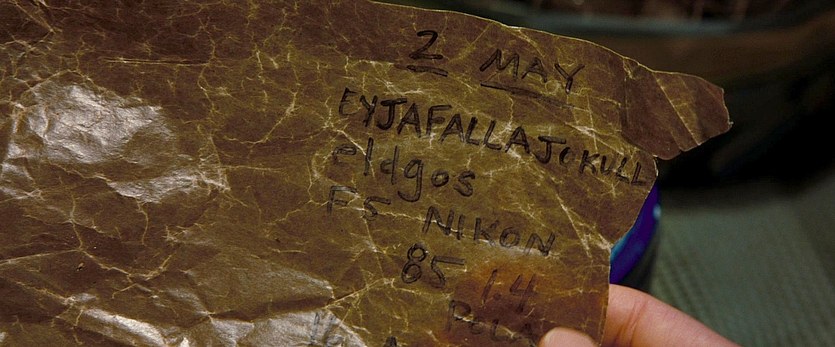 2 MAY
EYJAFALLAJOKULL
eldgos
F5 NIKON
85 1.4